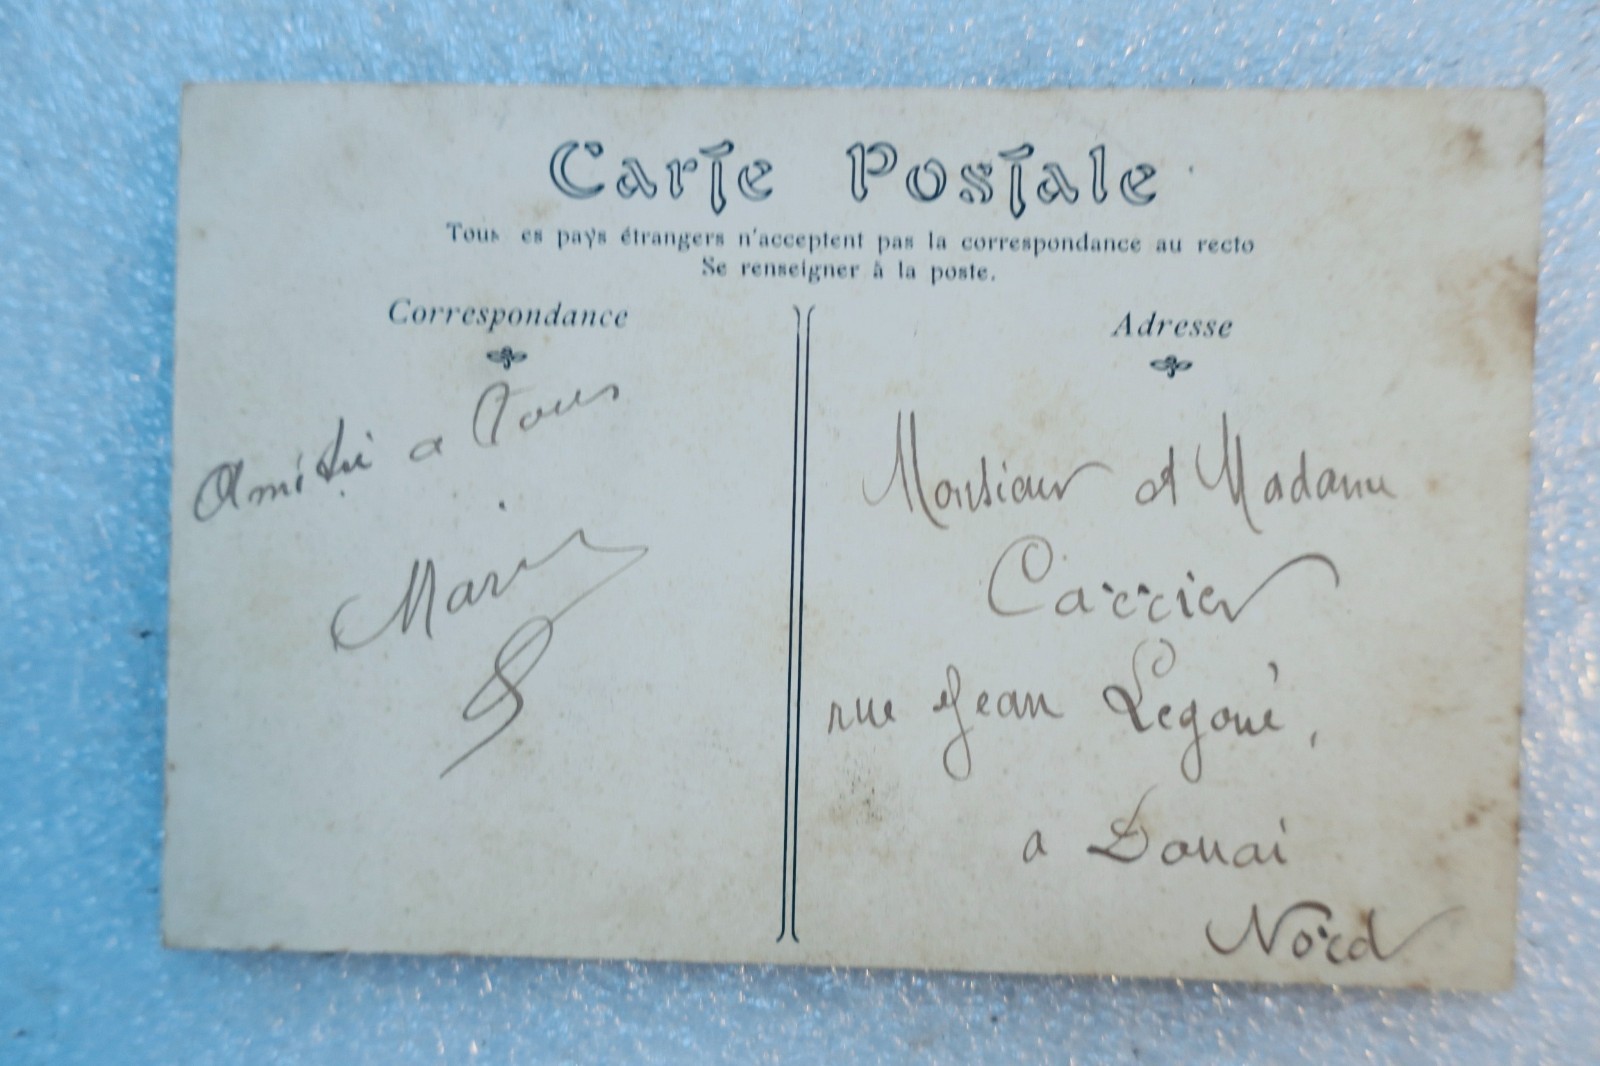 Carte Postale
Tous es pays étrangers n'acceptent pas la correspondance au recto
Se renseigner à la poste.
Correspondance
Amitié a Tous
Marie
Adresse
Monsieur et Madame
Carrier
rue Jean Legoué,
a Douai
Nord